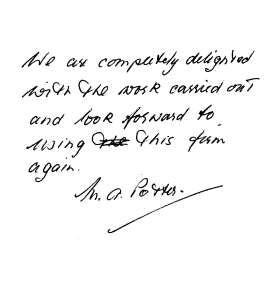 We are completely delighted
with the work carried out
and look forward to
using the this firm
again.
M. A. Porter.